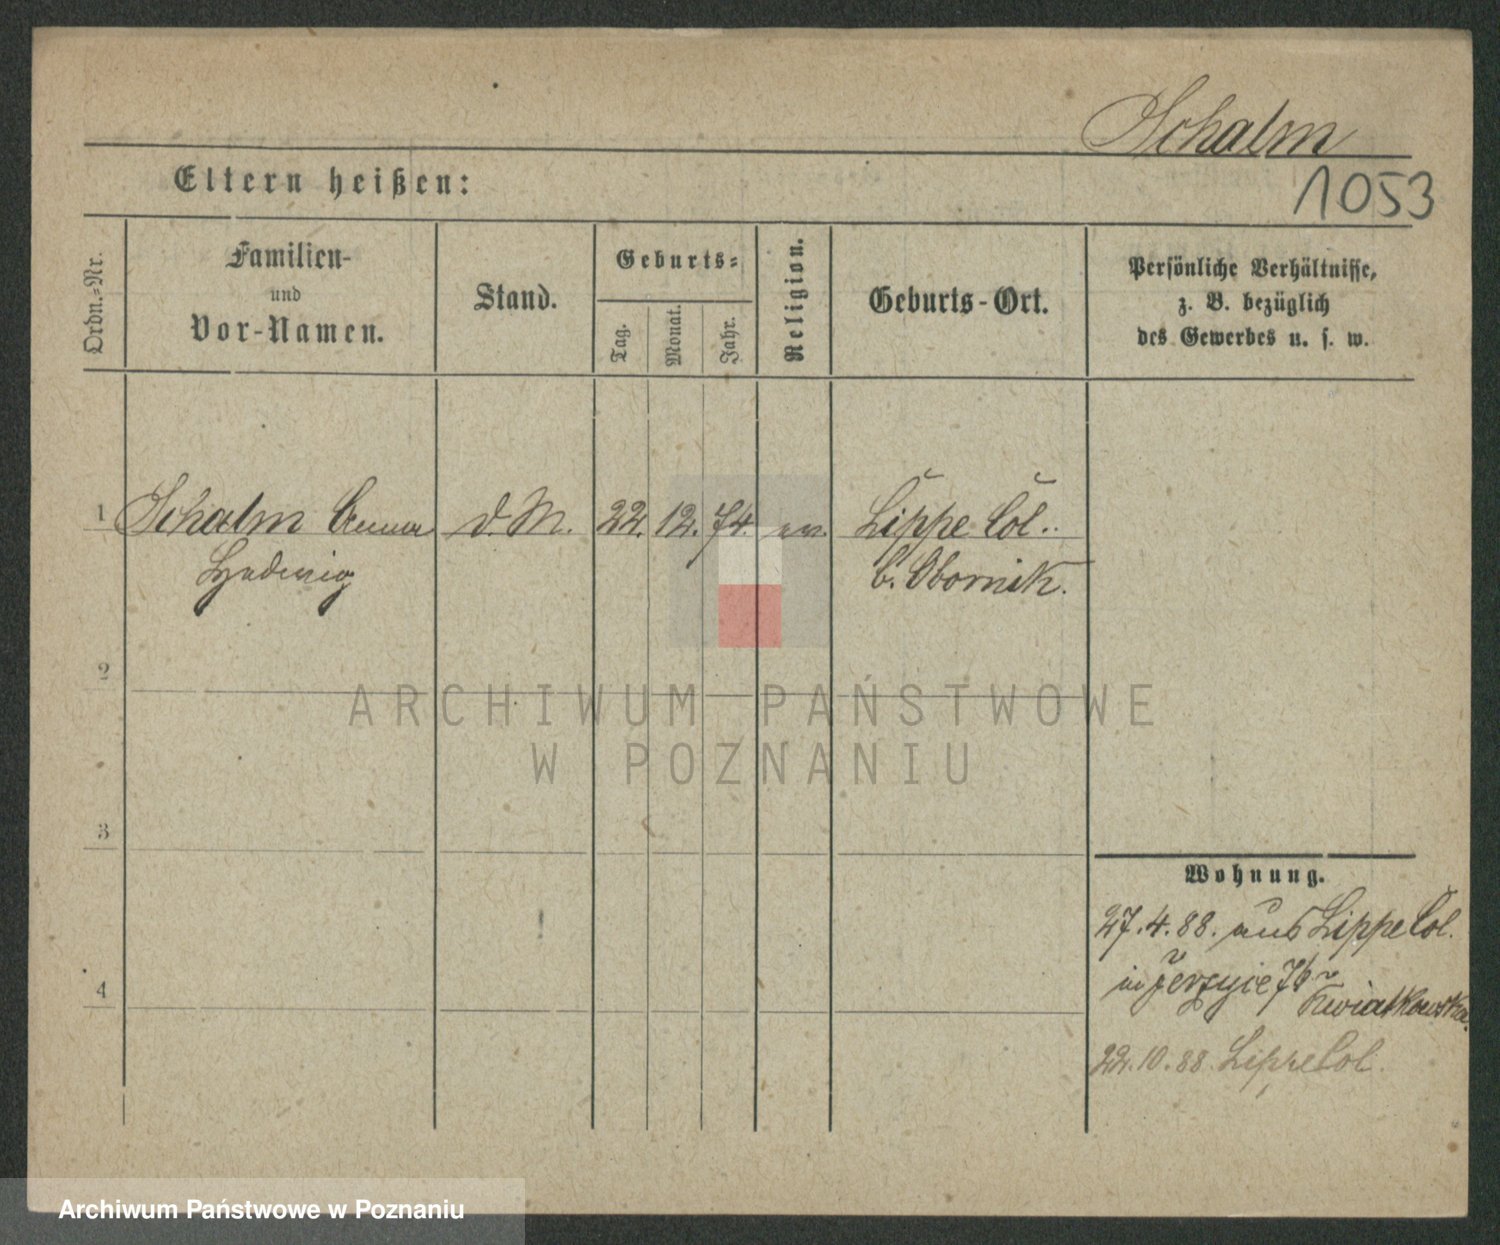 Schalm
1053
Eltern heißen:
Ordn.-Nr.
Familien-
und
Vor-Namen.
Stand.
Geburts-
Tag.
Monat.
Jahr.
Religion.
Geburts-Ort.
Persönliche Verhältnisse,
z. B. bezüglich
des Gewerbes u. s. w.
1 Schalm Anna d. M. 22. 12. 74. ev. Lippe Col.
Hedwig b. Obornik.
2
ARCHIWUM PAŃSTWOWE
W POZNANIU
3
Wohnung.
27.4.88. aus Lippe Col.
4
in Jerzyce 76
Kwiatkowska.
22.10.88. Lippe Col.
Archiwum Państwowe w Poznaniu